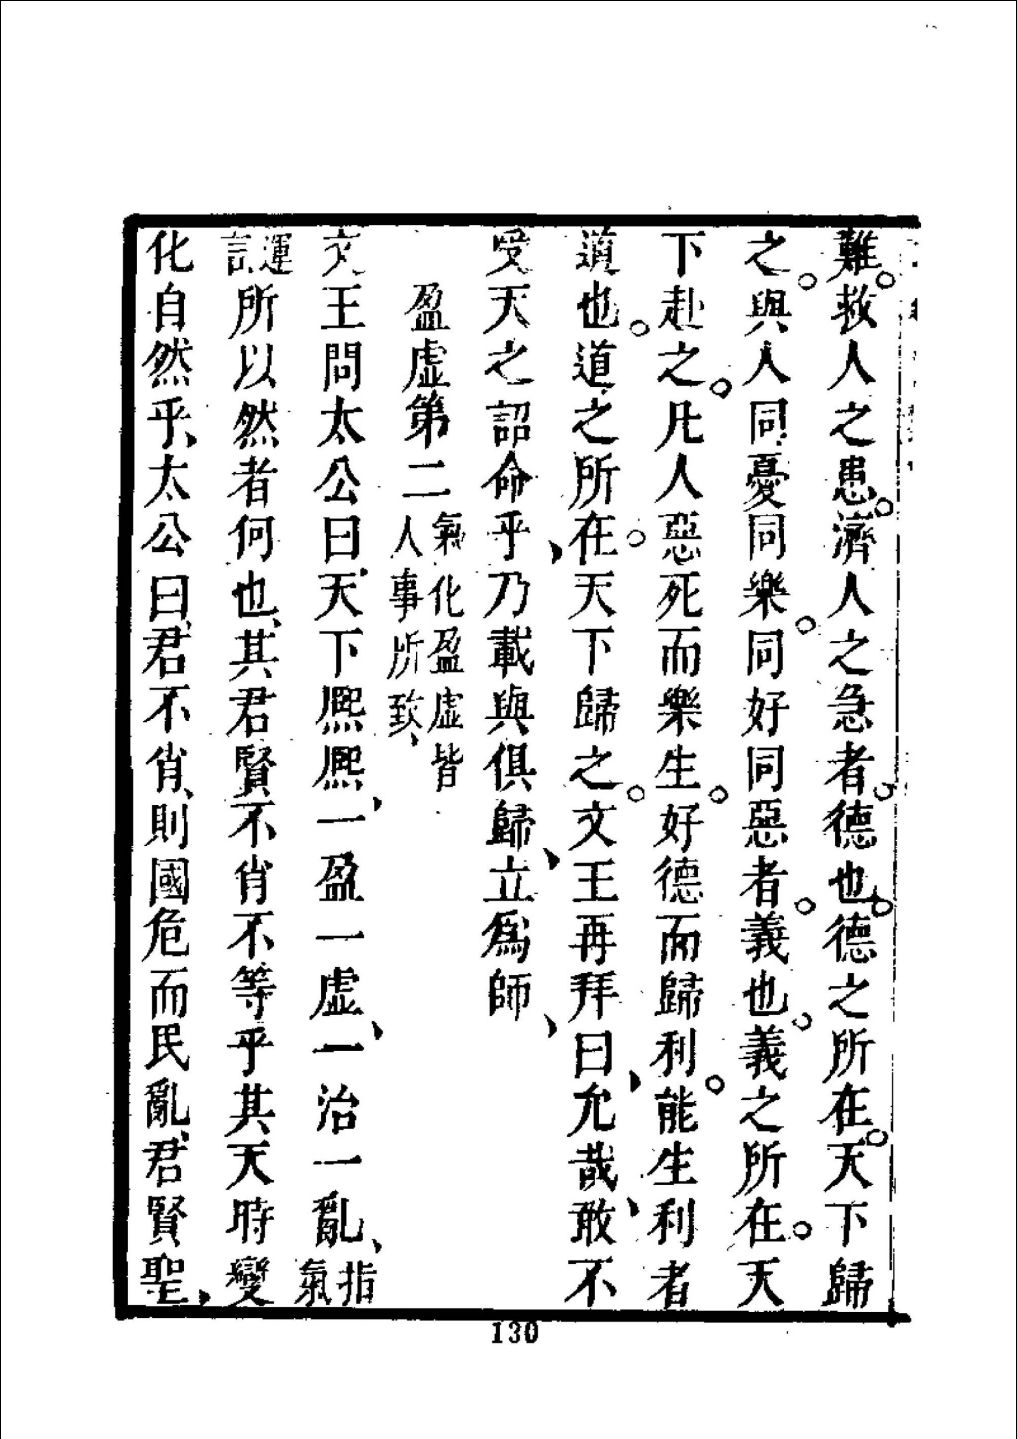 難。救人之患。濟人之急者。德也。德之所在。天下歸
之。與人同憂同樂。同好同惡者。義也。義之所在。天
下赴之。凡人惡死而樂生。好德而歸利。能生利者
道也。道之所在。天下歸之。文王再拜曰、允哉、敢不
受天之詔命乎、乃載與俱歸、立爲師、
盈虛第二氣化盈虛皆人事所致、
文王問太公曰、天下熈熈、一盈一虛、一治一亂、指氣
運言所以然者何也、其君賢不肖不等乎其天時變
化自然乎、太公曰、君不肖、則國危而民亂、君賢聖、
130